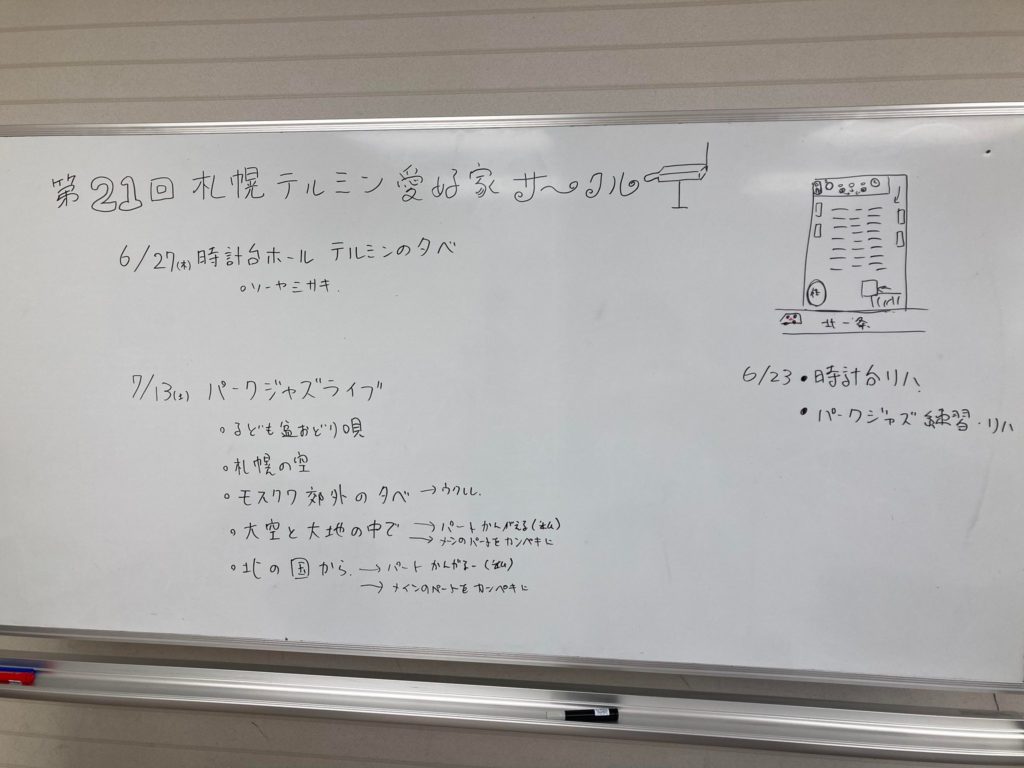 第21回 札幌テルミン愛好家サークル
6/27(木) 時計台ホール テルミンの夕べ
◦ソーヤミサキ.
7/13(土) パークジャズライブ
◦子ども盆おどり唄
◦札幌の空
◦モスクワ郊外の夕べ →ウクレレ.
◦大空と大地の中で →パートかんがえる
→メンのパートをカンペキに
◦北の国から. →パートかんがるー
→メインのパートをカンペキに
北一条
6/23 •時計台リハ
•パークジャズ練習・リハ